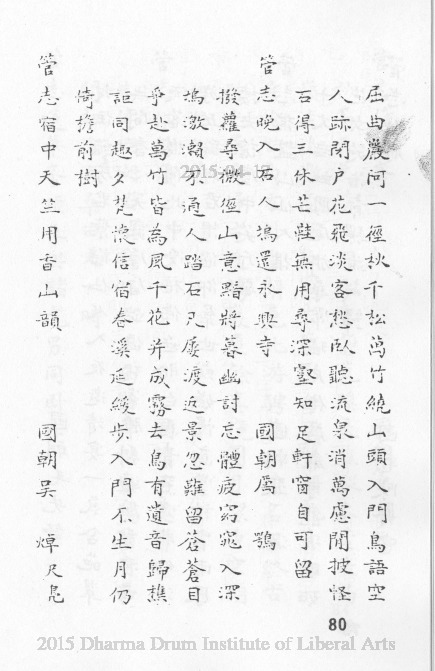 屈曲巖阿一徑秋千松萬竹繞山頭入門鳥語空
人跡閉戶花飛淡客愁臥聽流泉消萬慮閒披怪
石得三休芒鞋無用尋深壑知足軒窗自可留
管志晚入石人塢還永興寺 國朝厲 鶚
撥蘿尋微徑山意黯將暮幽討忘體疲窈窕入深
塢激瀨不通人踏石凡屢渡近景忽難留蒼蒼目
乎赴萬竹皆為風千花并成霧去鳥有遺音歸樵
詎同趣夕梵懷信宿春溪延緩步入門不生月仍
倚檐前樹
管志宿中天竺用香山韻 國朝吳 焯尺鳧
80
2015-04-17
2015 Dharma Drum Institute of Liberal Arts